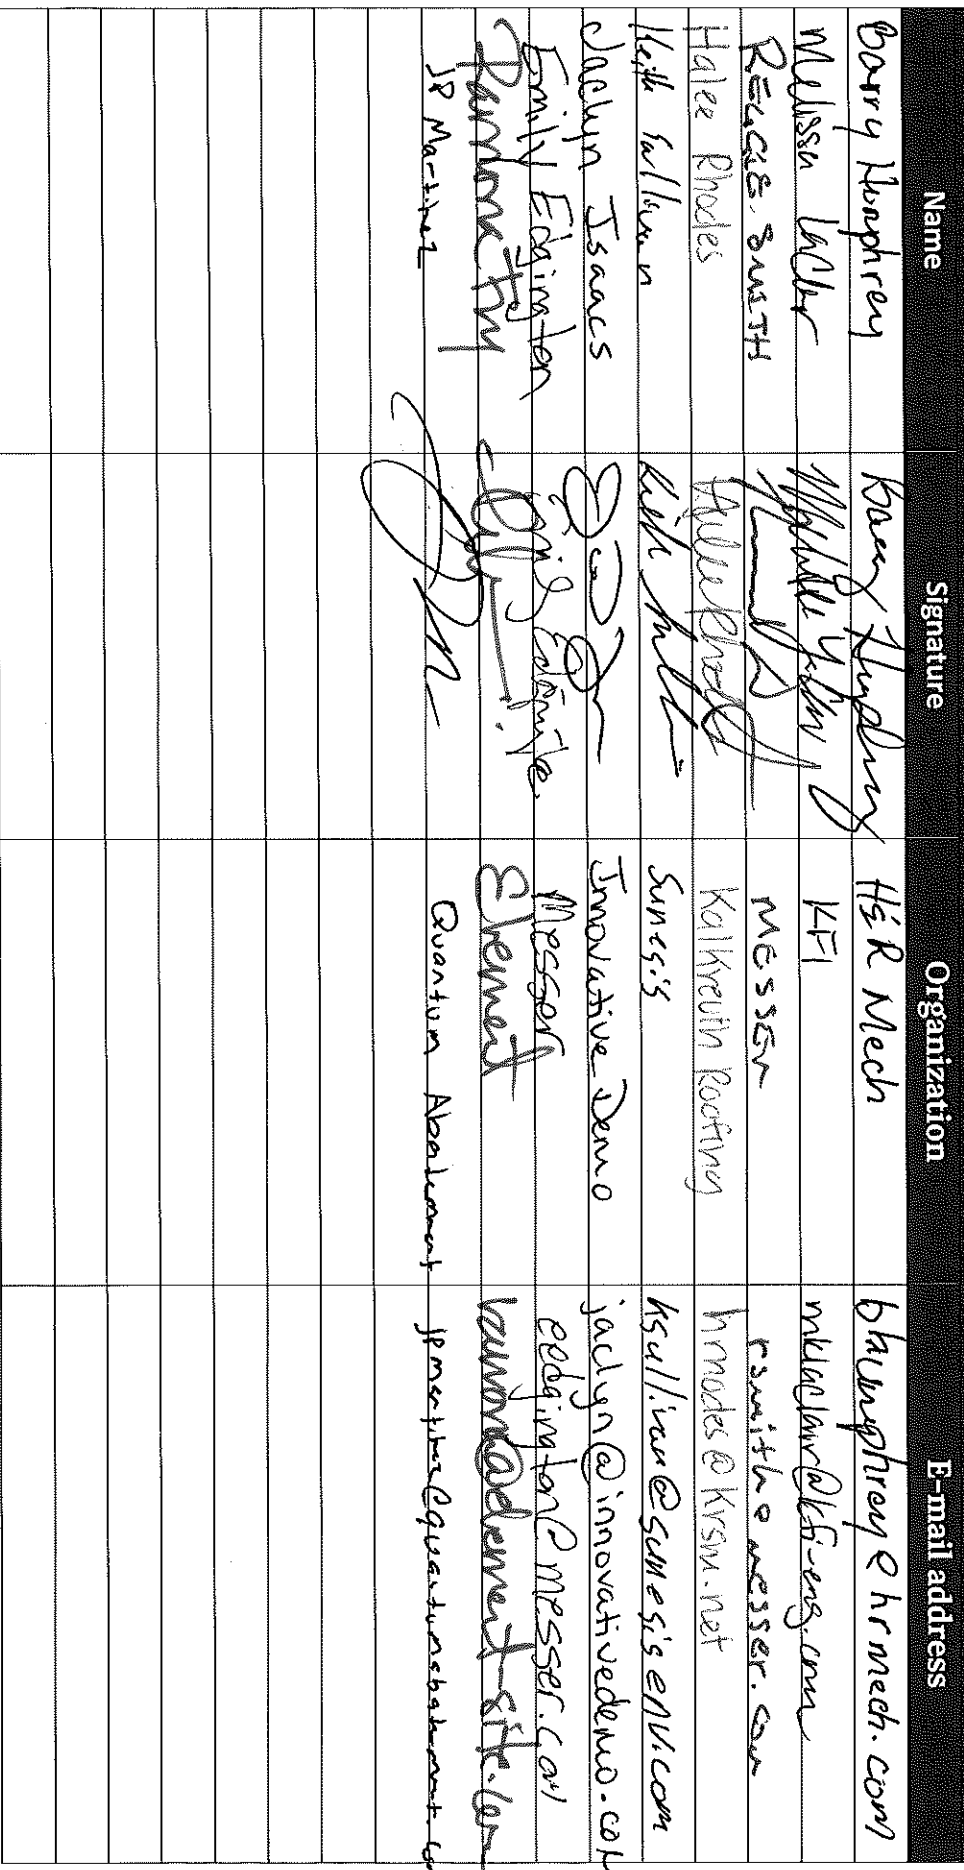 Name Signature Organization E-mail address
Barry Humphrey H&R Mech bhumphrey@hrmech.com
Melissa LaClair KFI mklaclair@kfi-eng.com
SMITH MESSER rsmith@messer.com
Halee Rhodes Kalkreuth Roofing hrhodes@krsm.net
Keith Sullivan Sunesis ksullivan@sunesisenv.com
Jaclyn Isaacs Innovative Demo jaclyn@innovativedemo.com
Emily Edgington Emily Messer eedgington@messer.com
Element
JP Martinez Quantum Abatement jpmartinez@quantumabatement.co